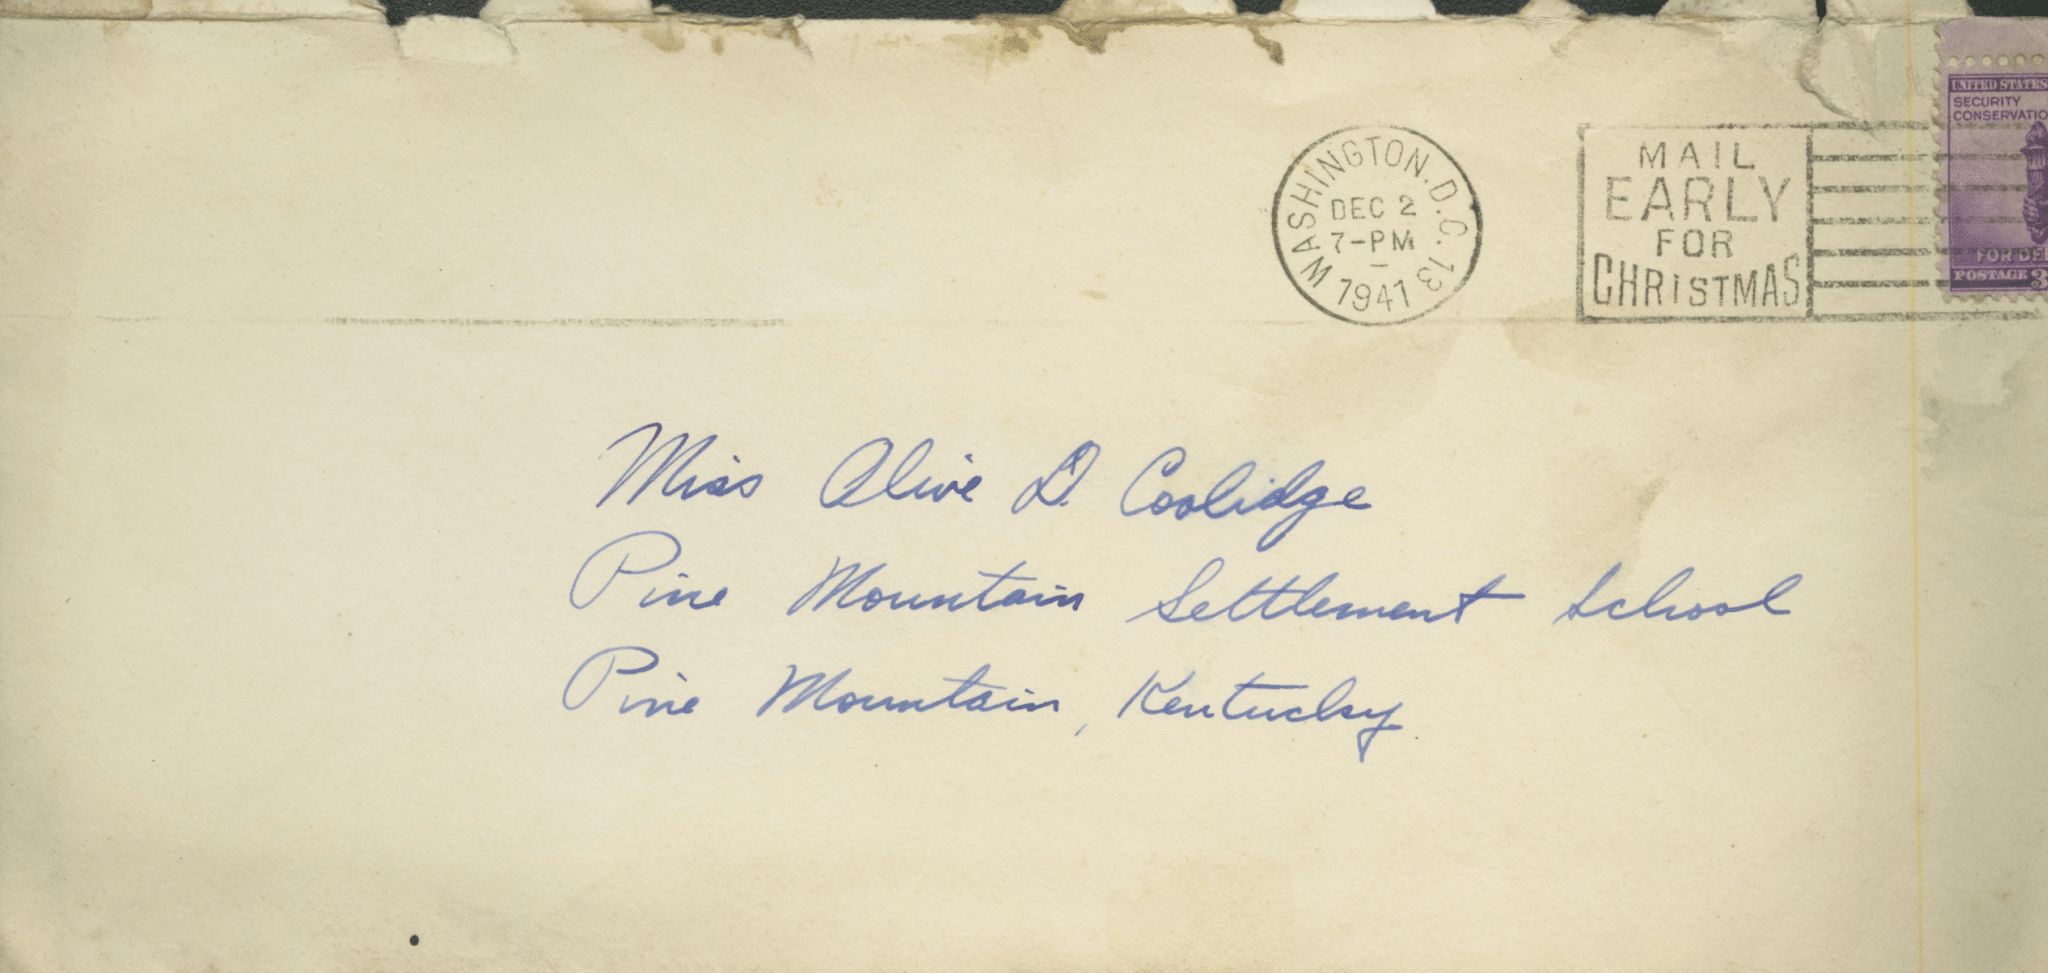 WASHINGTON, D.C. 13
DEC 2
7-PM
1941
MAIL
EARLY
FOR
CHRISTMAS
UNITED STATES
SECURITY
CONSERVATIO
FOR DE
POSTAGE 3
Miss Olive D. Coolidge
Pine Mountain Settlement School
Pine Mountain, Kentucky